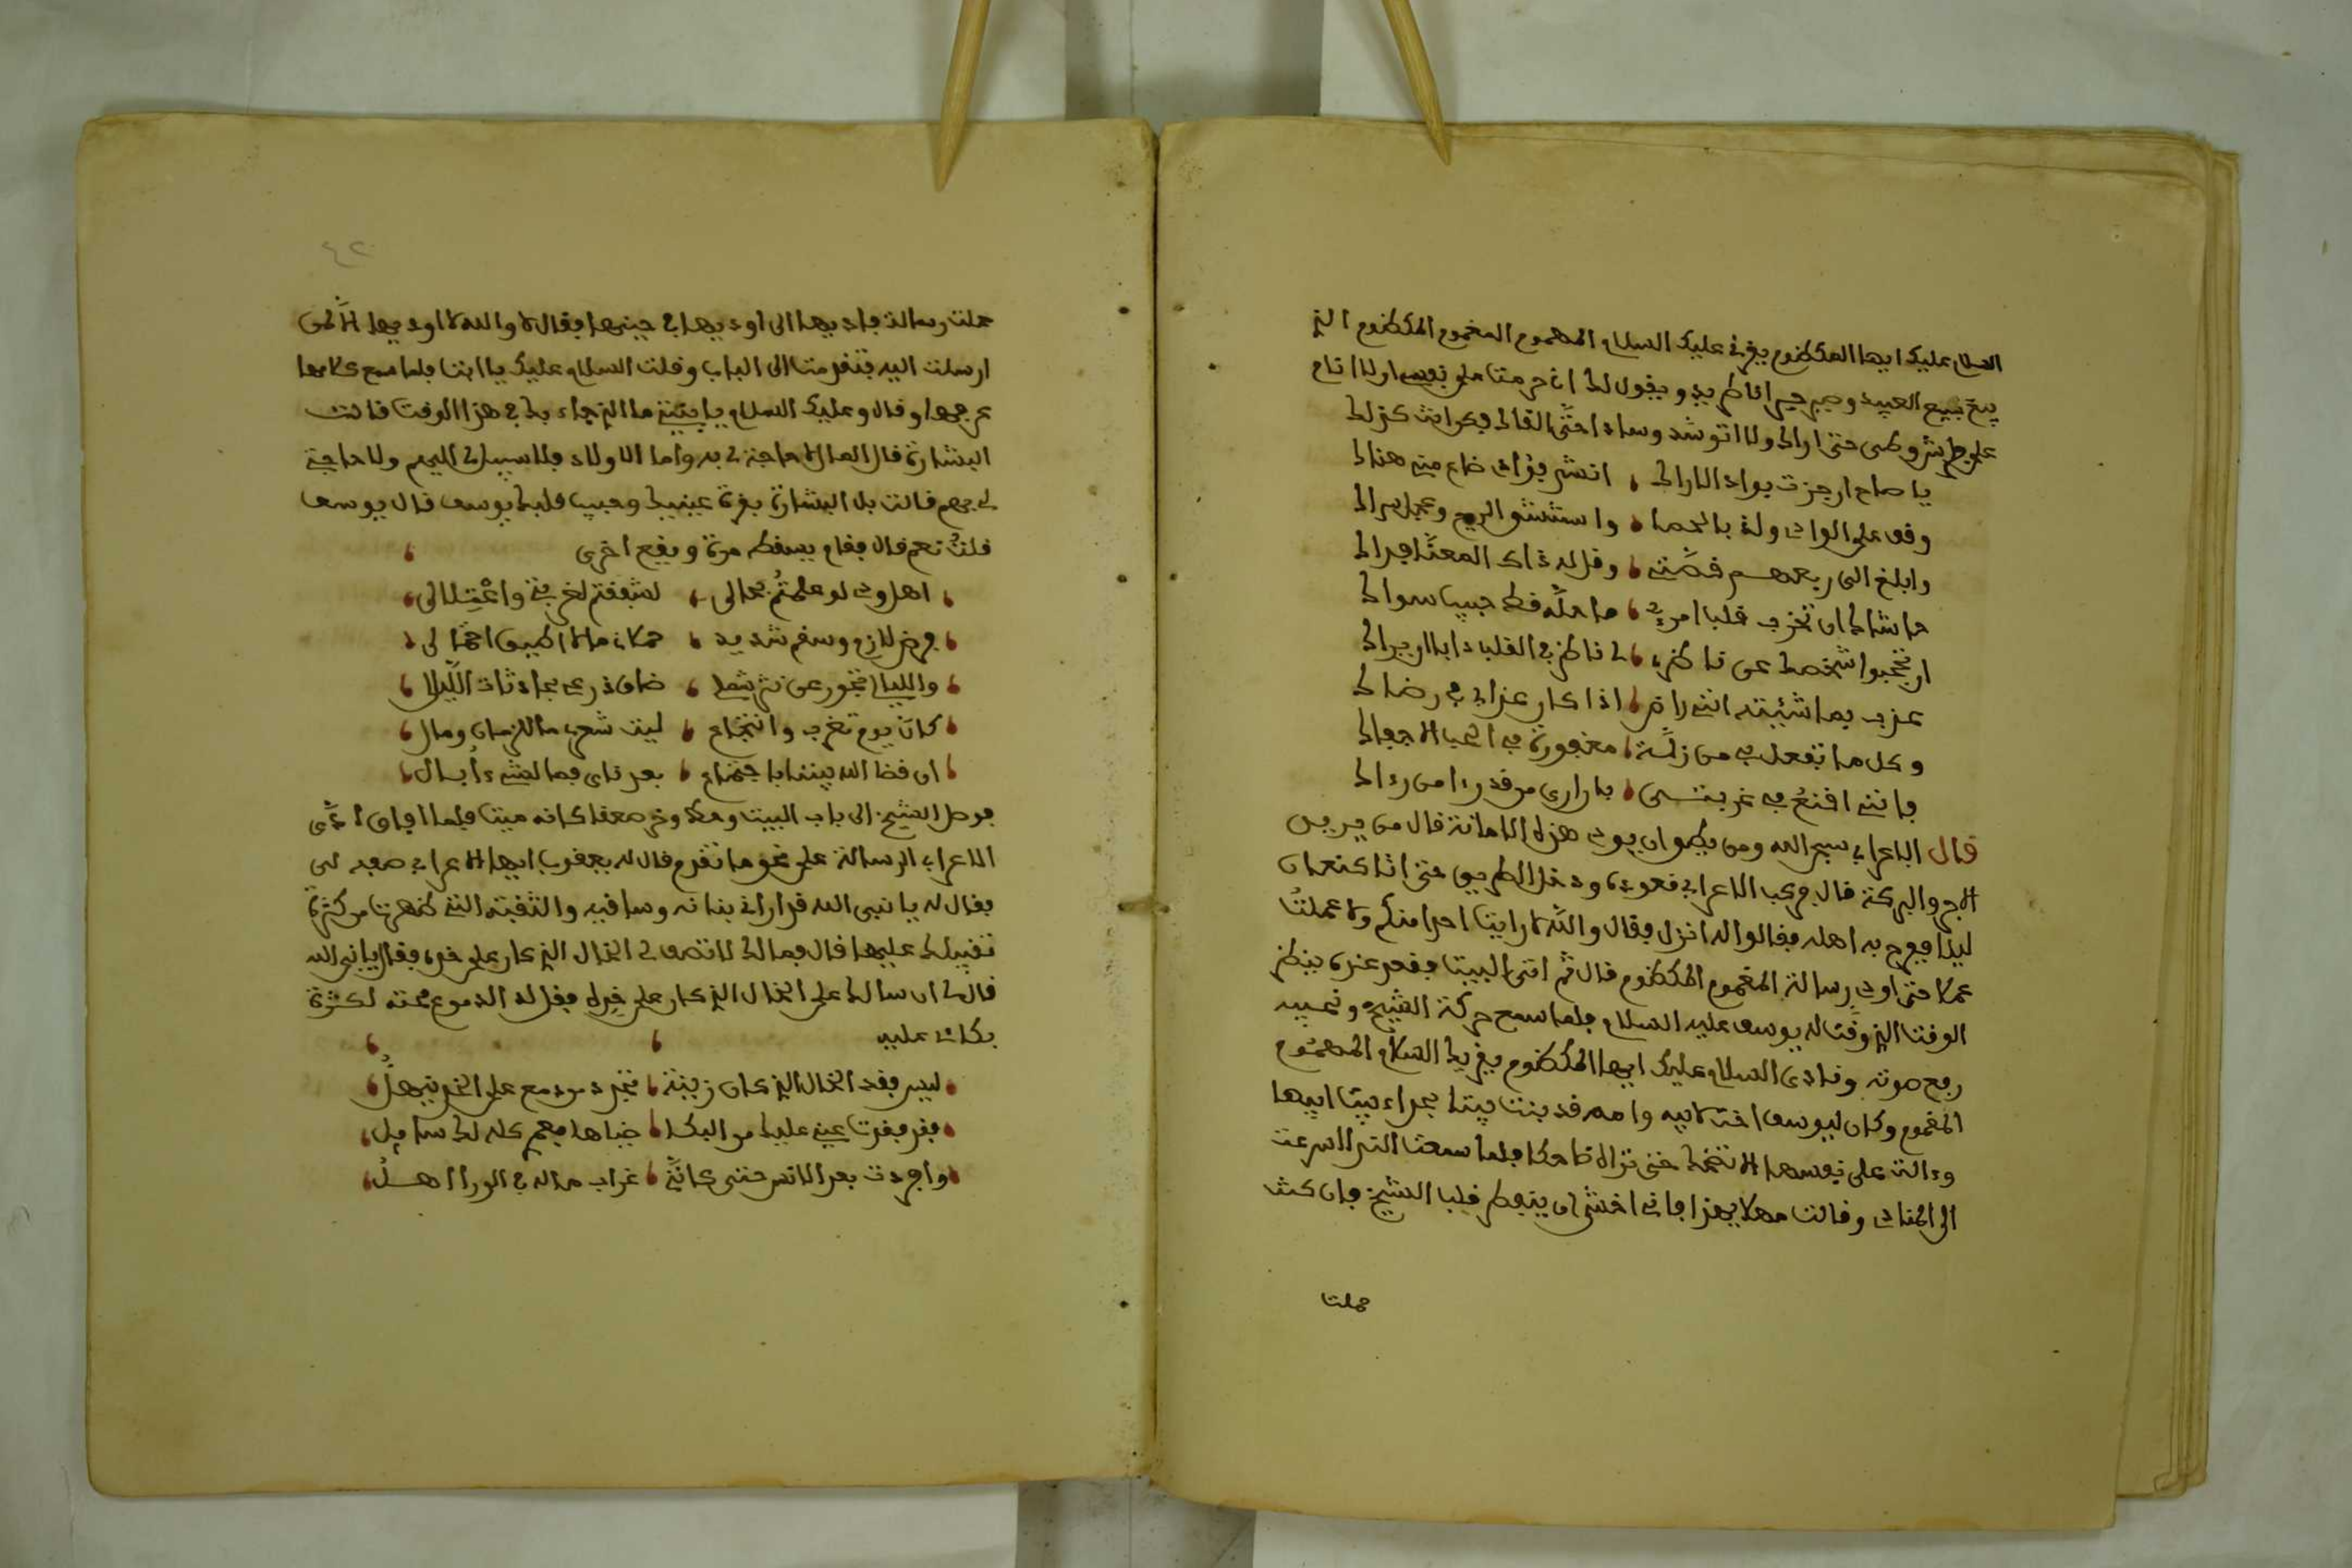 السلام عليك ايها المكظوم يقرئ عليك السلام المهموم المغموم المكظوم الذي
بيع بيع العبيد وصبر ويقول لك اني حرمت على نفسي اولا انام
على شروطي حتى اراك ولا اتوسّد وسادا حتّى القاك
يا صاح ان جزت بواد الاراك ، انشد فؤادي ضاع مني هناك
وقف على الوادي ولذ بالحما ، واستنشق الريح وعجل سراك
وابلغ الى ربعهم قصّتي ، وقل له ذاك المعنّا فداك
حاشاك ان تخرب قلب امرئ ، ما حلّه قط حبيب سواك
ان تحجبوا شخصك عن ناظري ، في القلب دايما يراك
عذب بما شئت انني راض ، اذا كان عذابي في رضاك
وكل ما تفعل بي من زلّة ، مغفورة في الحب الا جفاك
فانني اقنع في غربتي ، بان ارى من قد راا من رءاك
قال الاعرابي سبحان الله ومن يطيق ان يودي هذه الامانة قال من يريد
الاجر والبركة قال فركب الاعرابي قعوده ودخل الطريق حتى اتا كنعان
ليلا ففرح به اهله فقالوا له انزل فقال والله لا رايت احدا منكم ولا عملت
عملا حتى اودي رسالة المغموم المكظوم قال ثم اتى البيت فقعد عنده ينظر
الوقت الذي وقّت له يوسف عليه السلام فلما سمع حركة الشيخ ونحيبه
رفع صوته ونادى السلام عليك ايها المكظوم يقريك السلام المهموم
المغموم وكان ليوسف اخت لابيه وامه قد بنت بيتا بحداء بيت ابيها
وءالت على نفسها الا تضحك حتى تراه ضاحكا فلما سمعت النداء اسرعت
الى المنادي وقالت مهلا يا هذا فاني اخشى ان ينفطر قلب الشيخ فان كنت
حملت
٤٢
حملت رسالة فادّيها الي اوديها في حينها فقال لا والله لا اوديها الا لمن
ارسلت اليه فتقدمت الى الباب وقلت السلام عليك يا ابت فلما سمع كلامها
عرفها وقال وعليك السلام يا بنيتي ما الذي جاء بك في هذا الوقت قالت
البشارة قال المال لا حاجة لي به واما الاولاد فلا سبيل لي اليهم ولا حاجة
لي بهم قالت بل البشارة بقرة عينيك وحبيب قلبك يوسف قال يوسف
قلتُ نعم قال فقام يسقط مرة ويقع اخرى
، اهل ودي لو علمتُم بحالي ، لشفقتم لغربتي واعتلالي ،
، مرض لازم وسقم شديد ، حملاني مالا اطيق احتمالي ،
، والليالي تجور عن نثر شملي ، ضاق ذرعي بحادثات الليالي ،
، كان يوم تغرب وانتجاع ، ليت شعري ما للزمان ومالي ،
، ان قضا الله بيننا باجتماع ، بعد ناي فما لشيء ابالي ،
فوصل الشيخ الى باب البيت وخر صعقا كانه ميت فلما افاق ادّى
الاعرابي الرسالة على نحو ما تقدم قال له يعقوب ايها الاعرابي صفه لي
فقال له يا نبي الله قد اراني بنانه وساقيه والشفته التي ظهرت من كثرة
تقبيلك عليها قال فما لك لا تصف لي الخال الذي كان على خده فقال يا نبي الله
قال لي ان سالك على الخال الذي كان على خدي فقل له الدموع محته لكثرة
بكائه عليه
، ليس بفقد الخال الذي كان زينة ، تجرد من دمع على الخد ينهلُ ،
، فقد فقدت عيني عليك من البكا ، ضياها فهم كله لك سابل ،
، واجردت بعد الانس حتى كانّني ، غراب ماله في الورا اهلُ ،